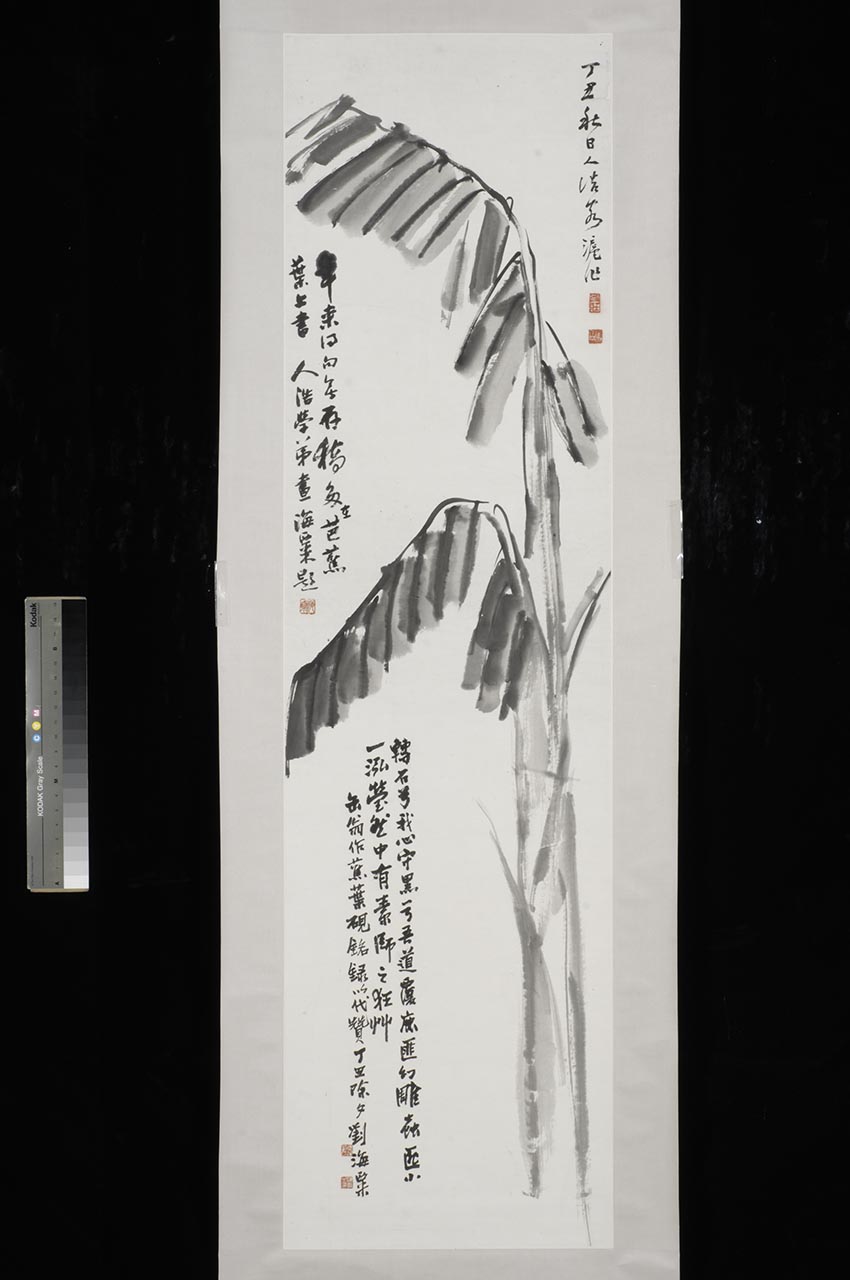 丁丑秋日人浩客滬作
年來得句無存稿多在芭蕉
葉上書 人浩學弟畫 海粟題
轉石兮我心守黑兮吾道覆鹿匪幻雕蟲匪小
一泓瑩然中有素師之狂艸
缶翁作蕉葉硯銘錄以代贊丁丑除夕劉海粟
Kodak
KODAK Gray Scale
C Y M